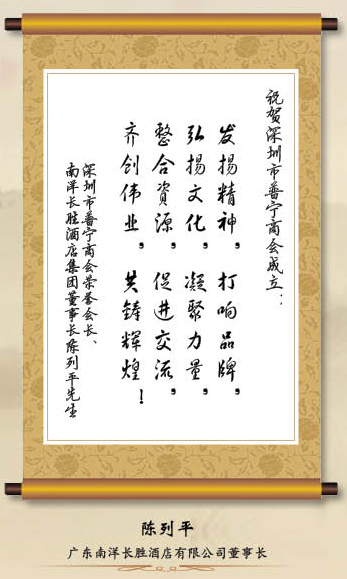 祝贺深圳市普宁商会成立：
发揚精神，打响品牌，
弘揚文化，凝聚力量，
整合資源，促进交流，
齐创伟业，共铸辉煌！
深圳市普宁商会荣誉会长、
南洋长胜酒店集团董事长陈列平先生
陈列平
广东南洋长胜酒店有限公司董事长